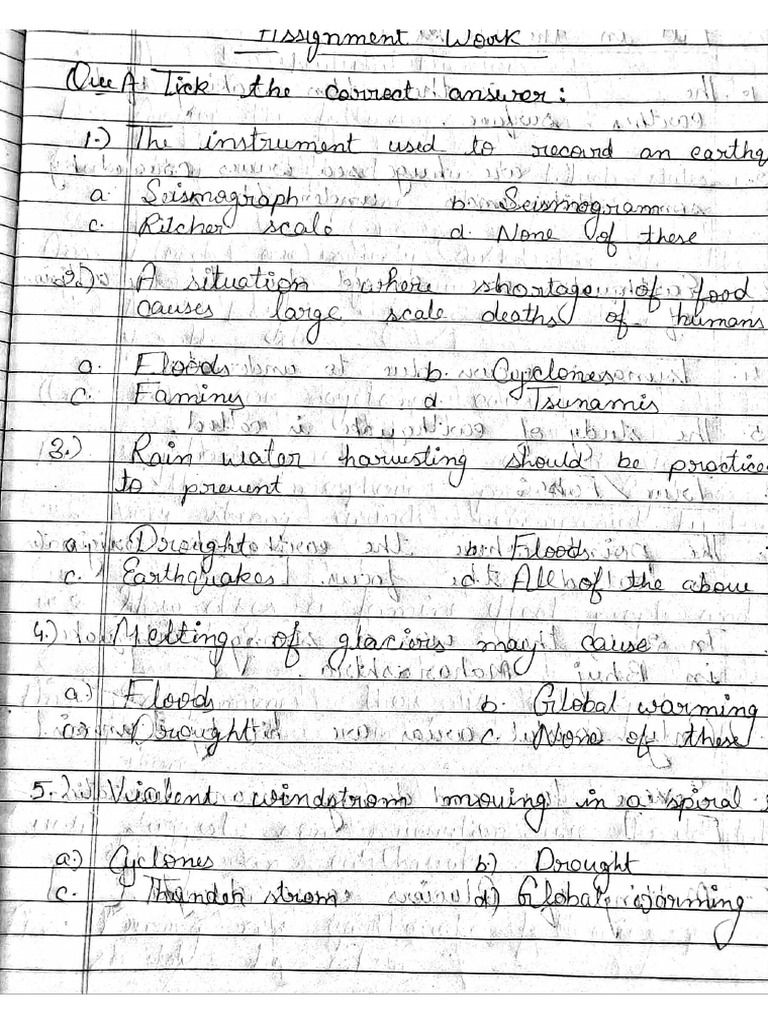 Assignment Work
Que A Tick the correct answer:
1.) The instrument used to record an earthq
a. Seismograph b. Seismogram
c. Ritcher scale d. None of these
2.) A situation where shortage of food
causes large scale deaths of humans
a. Floods b. Cyclones
c. Famins d. Tsunamis
3.) Rain water harvesting should be practice
to prevent
a. Drought b. Floods
c. Earthquakes d. All of the above
4.) Melting of glaciers may cause
a.) Floods b. Global warming
Drought c. None of these
5. Violent windstrom moving in a spiral
a.) Cyclones b.) Drought
c. Thunder strom d.) Global warming